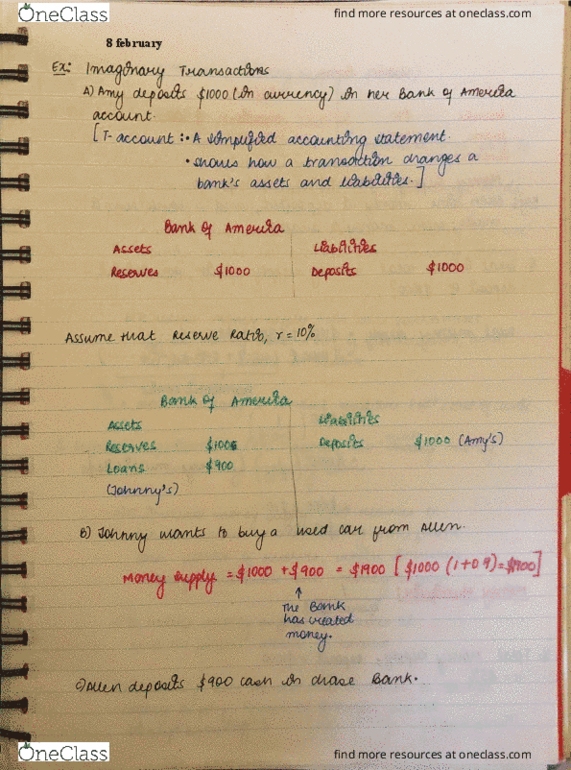 OneClass find more resources at oneclass.com
8 february
Ex: Imaginary Transactions
A) Amy deposits $1000 (in currency) in her Bank of America
account.
[T-account :• A simplified accounting statement.
• shows how a transaction changes a
bank's assets and liabilities.]
Bank of America
Assets Liabilities
Reserves $1000 Deposits $1000
Assume that Reserve Ratio, r = 10%
Bank of America
Assets Liabilities
Reserves Deposits $1000 (Amy's)
Loans $900
(Johnny's)
B) Johnny wants to buy a used car from Allen.
Money supply = $1000 + $900 = $1900 [$1000 (1+0.9) = $1900]
↑
The Bank
has created
money.
c) Allen deposits $900 cash in chase Bank.
OneClass find more resources at oneclass.com